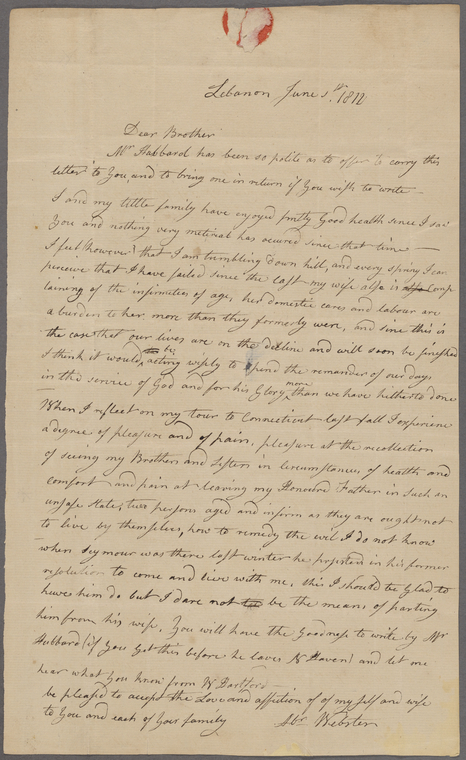 Lebanon June 1st. 1812
Dear Brother
Mr Hubbard has been so polite as to offer to carry this
letter to You, and to bring me in return if You wish to write—
I and my little family have enjoyed pretty Good health since I saw
You and nothing very metireal has occured since that time—
I feel however that I am tumbling down hill, and every spring I can
perceive that I have failed since the last my wife also is also Comp
laining of the infirmities of age, her domestic cares and labour are
a burden to her more than they formerly were, and sinc this is
the case that our lives are on the decline and will soon be finished
I think it would be acting wisely to spend the remander of our days
in the service of God and for his Glory more than we have hetherto done
When I reflect on my tour to Connecticut last fall I experience
a degree of pleasure and of pain, pleasure at the recollection
of seeing my Brothers and Sisters in Circumstances of health and
comfort and pain at leaving my Honoured Father in such an
unsafe State, two persons aged and infirm as they are ought not
to live by themselves, how to remedy the evil I do not know
when Seymour was there last winter he persisted in his former
resolution to come and live with me, this I should be Glad to
have him do but I dare not be the means of parting
him from his wife, You will have the Goodness to write by Mr
Hubbard (if You Get this before he laves N Haven) and let me
hear what You know from W Hartford—
be pleased to accept the Love and affection of of my self and wife
to You and each of Your family Abr Webster